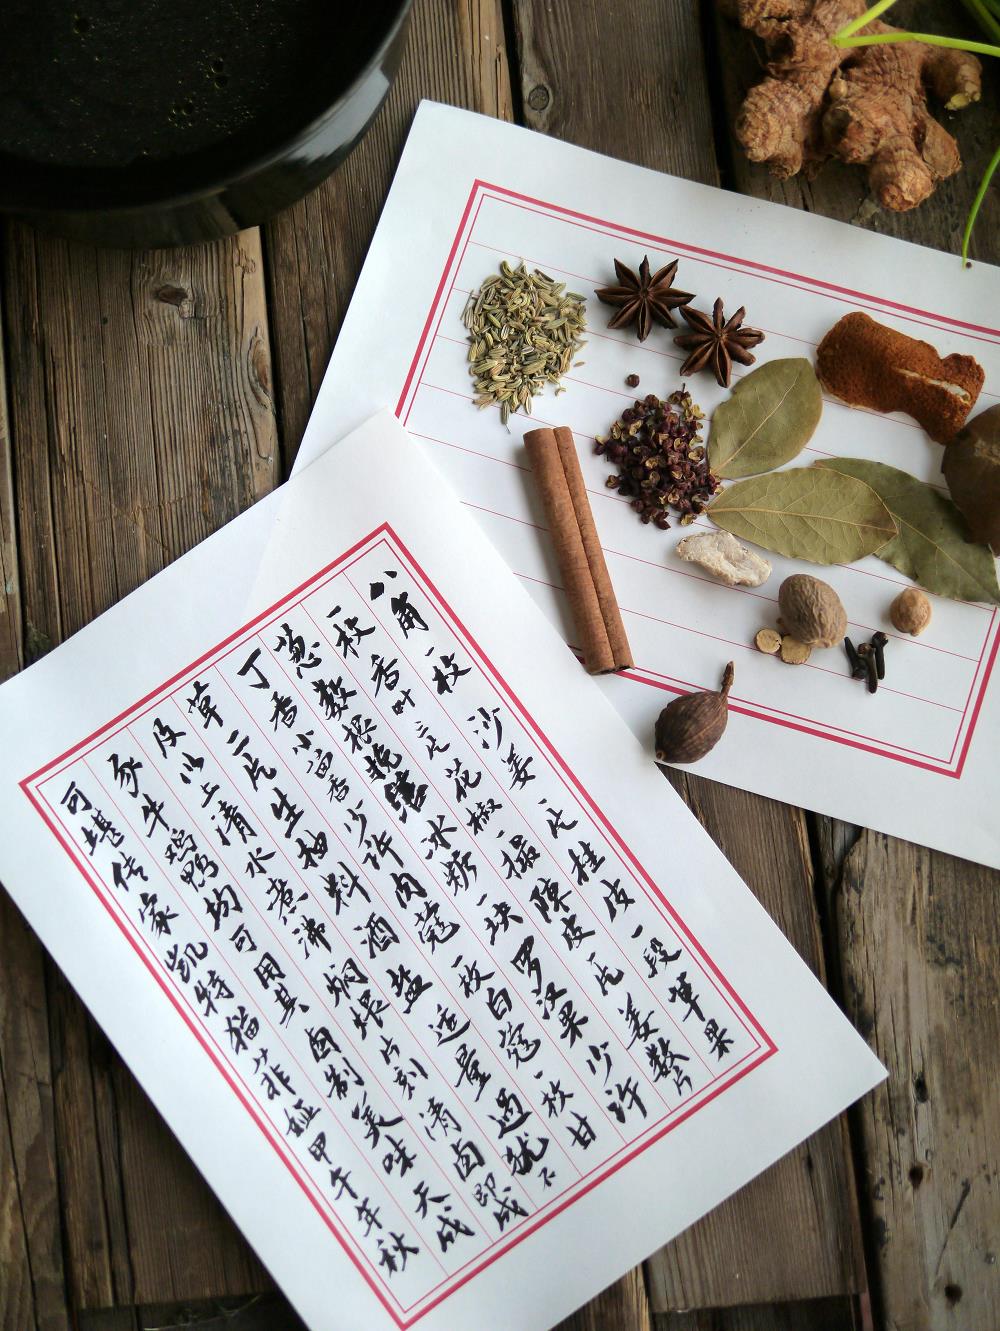 八角一枚沙姜一片桂皮一段草果
一枚香叶三片花椒一撮陳皮一片姜数片
葱数根挽髻冰糖一块罗汉果少许
丁香小茴香少许肉蔻一枚白蔻一枚甘
草二片生抽料酒盐适量过犹不
及以上清水煮沸焖煨片刻清卤即成
豕牛鸡鸭均可用其卤制美味天成
可堪传家凯特猫菲娅甲午年秋